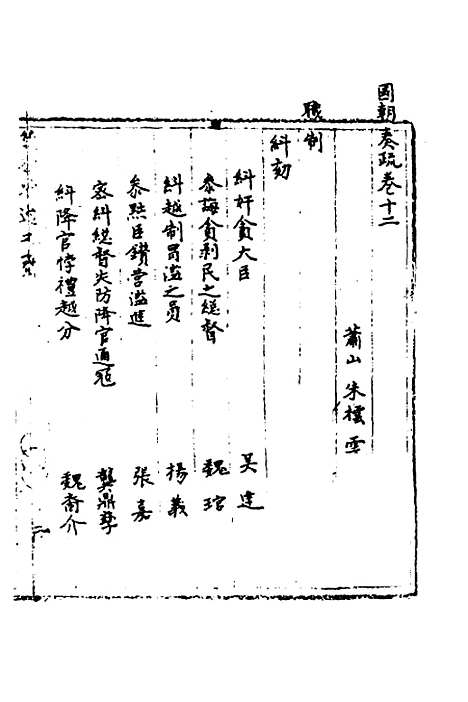 國朝奏疏卷十二
蕭山 朱櫺雲
職制
糾劾
糾奸貪大臣 吴達
叅誨貪剥民之總督 魏琯
糾越制冒濫之员 楊義
叅黜臣鑚营濫進 張嘉
密糾總督失防降官通冦 龔鼎孳
糾降官悖禮越分 魏裔介